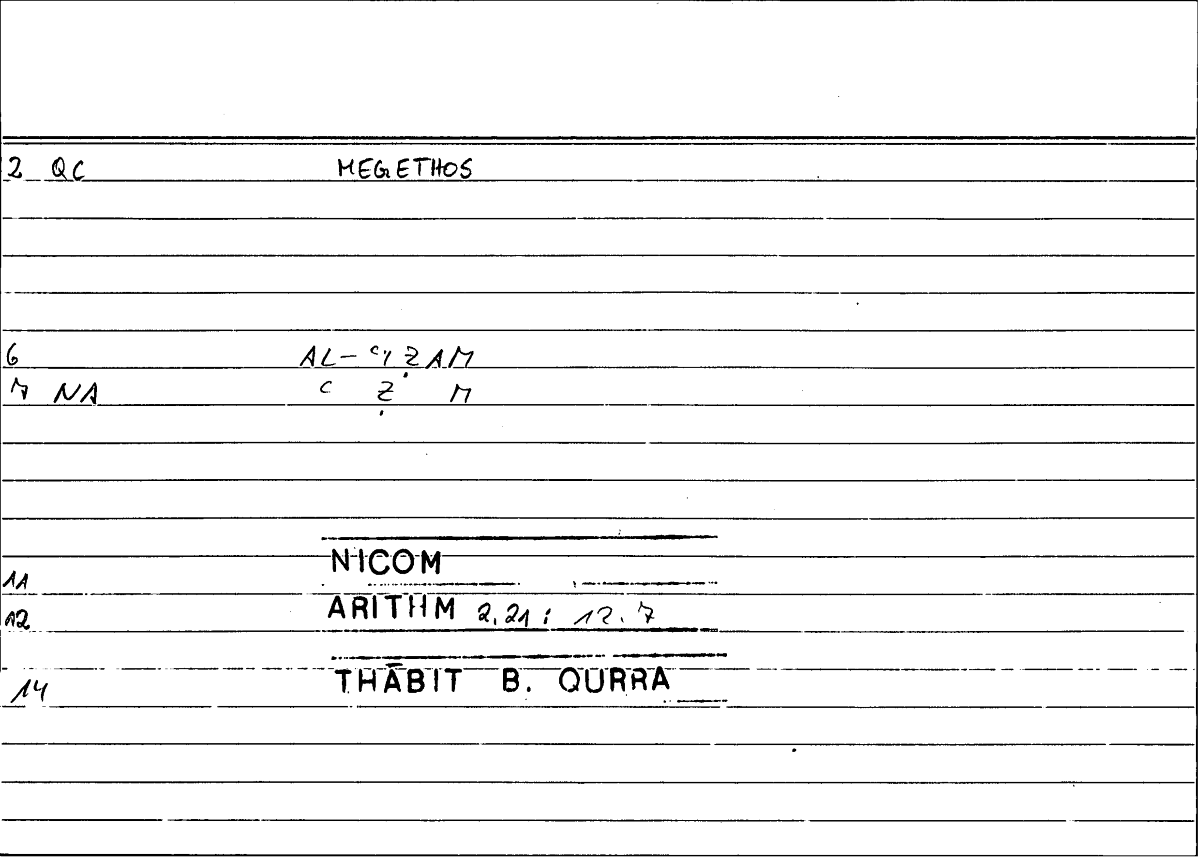 2 QC MEGETHOS
6 AL-ʿIẒAM
7 NA ʿ Ẓ M
11 NICOM
12 ARITHM 2,21 ; 12.7
14 THĀBIT B. QURRA